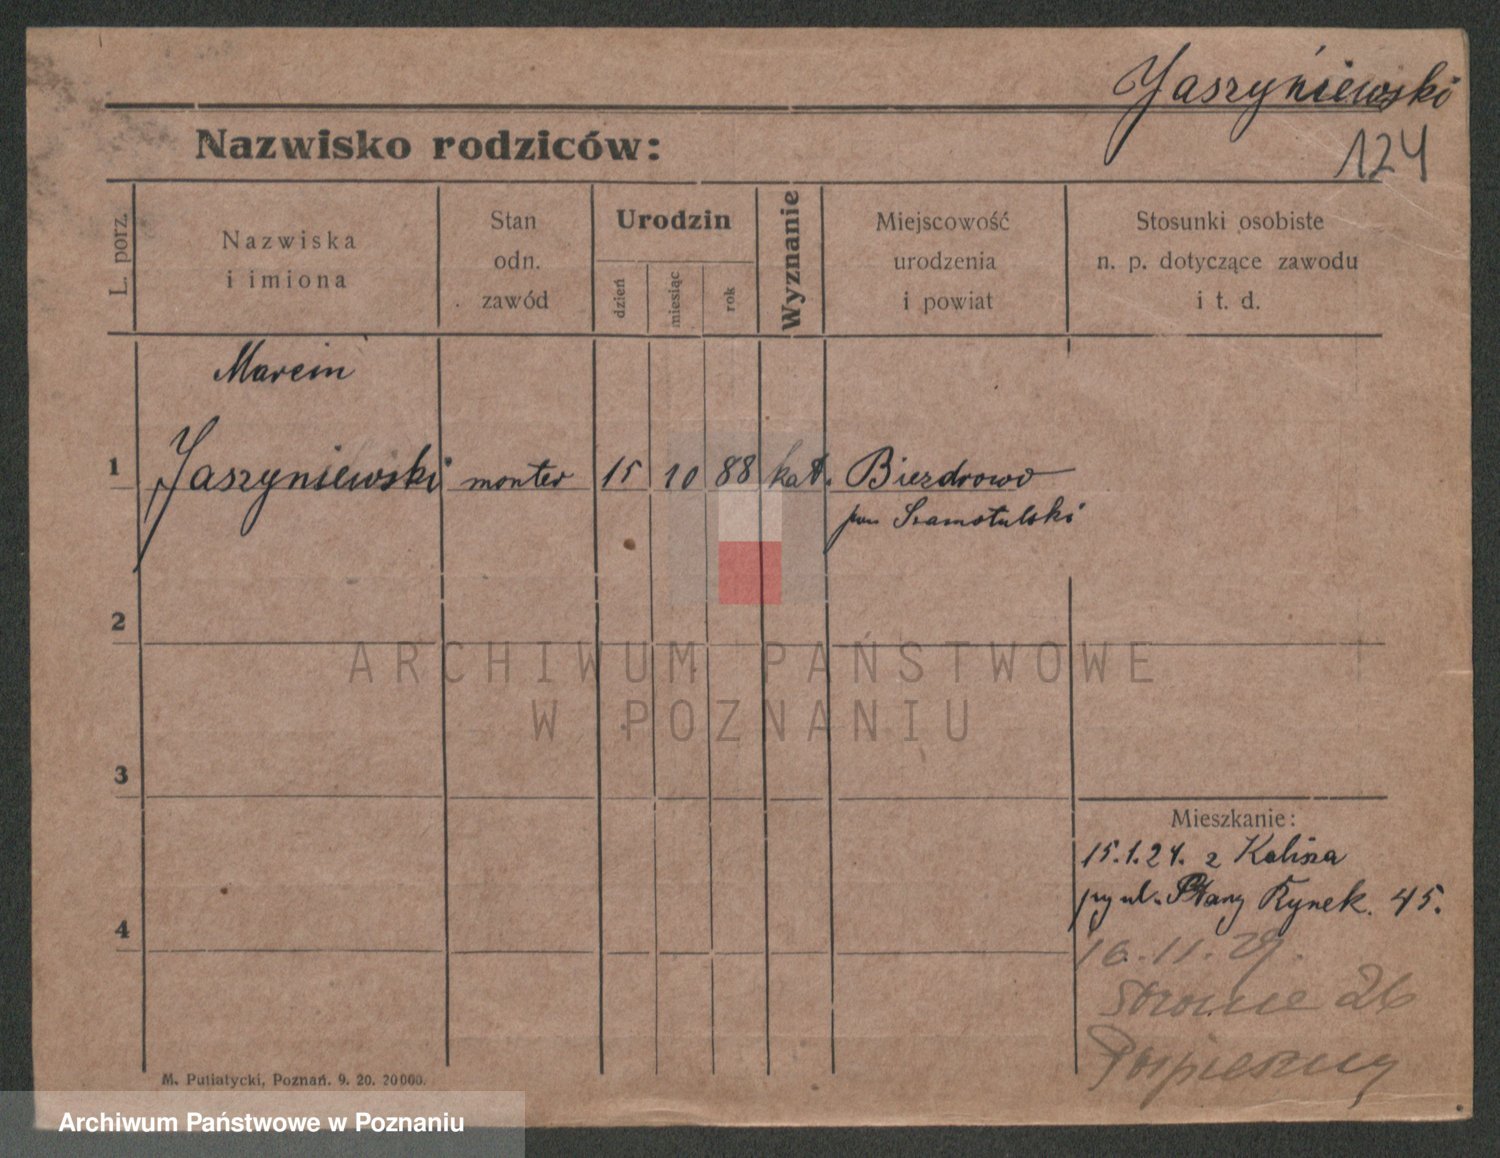 Jaszyniewski
124
Nazwisko rodziców:
L. porz.
Nazwiska
i imiona
Stan
odn.
zawód
Urodzin
dzień
miesiąc
rok
Wyznanie
Miejscowość
urodzenia
i powiat
Stosunki osobiste
n. p. dotyczące zawodu
i t. d.
Marcin
1 Jaszyniewski monter 15 10 88 kat. Biezdrowo
pow Szamotulski
2
3
4
Mieszkanie:
15.1.24. z Kalisza
Stary Rynek. 45.
16.11.29.
26
ARCHIWUM PAŃSTWOWE
W POZNANIU
M. Putiatycki, Poznań. 9. 20. 20000.
Archiwum Państwowe w Poznaniu